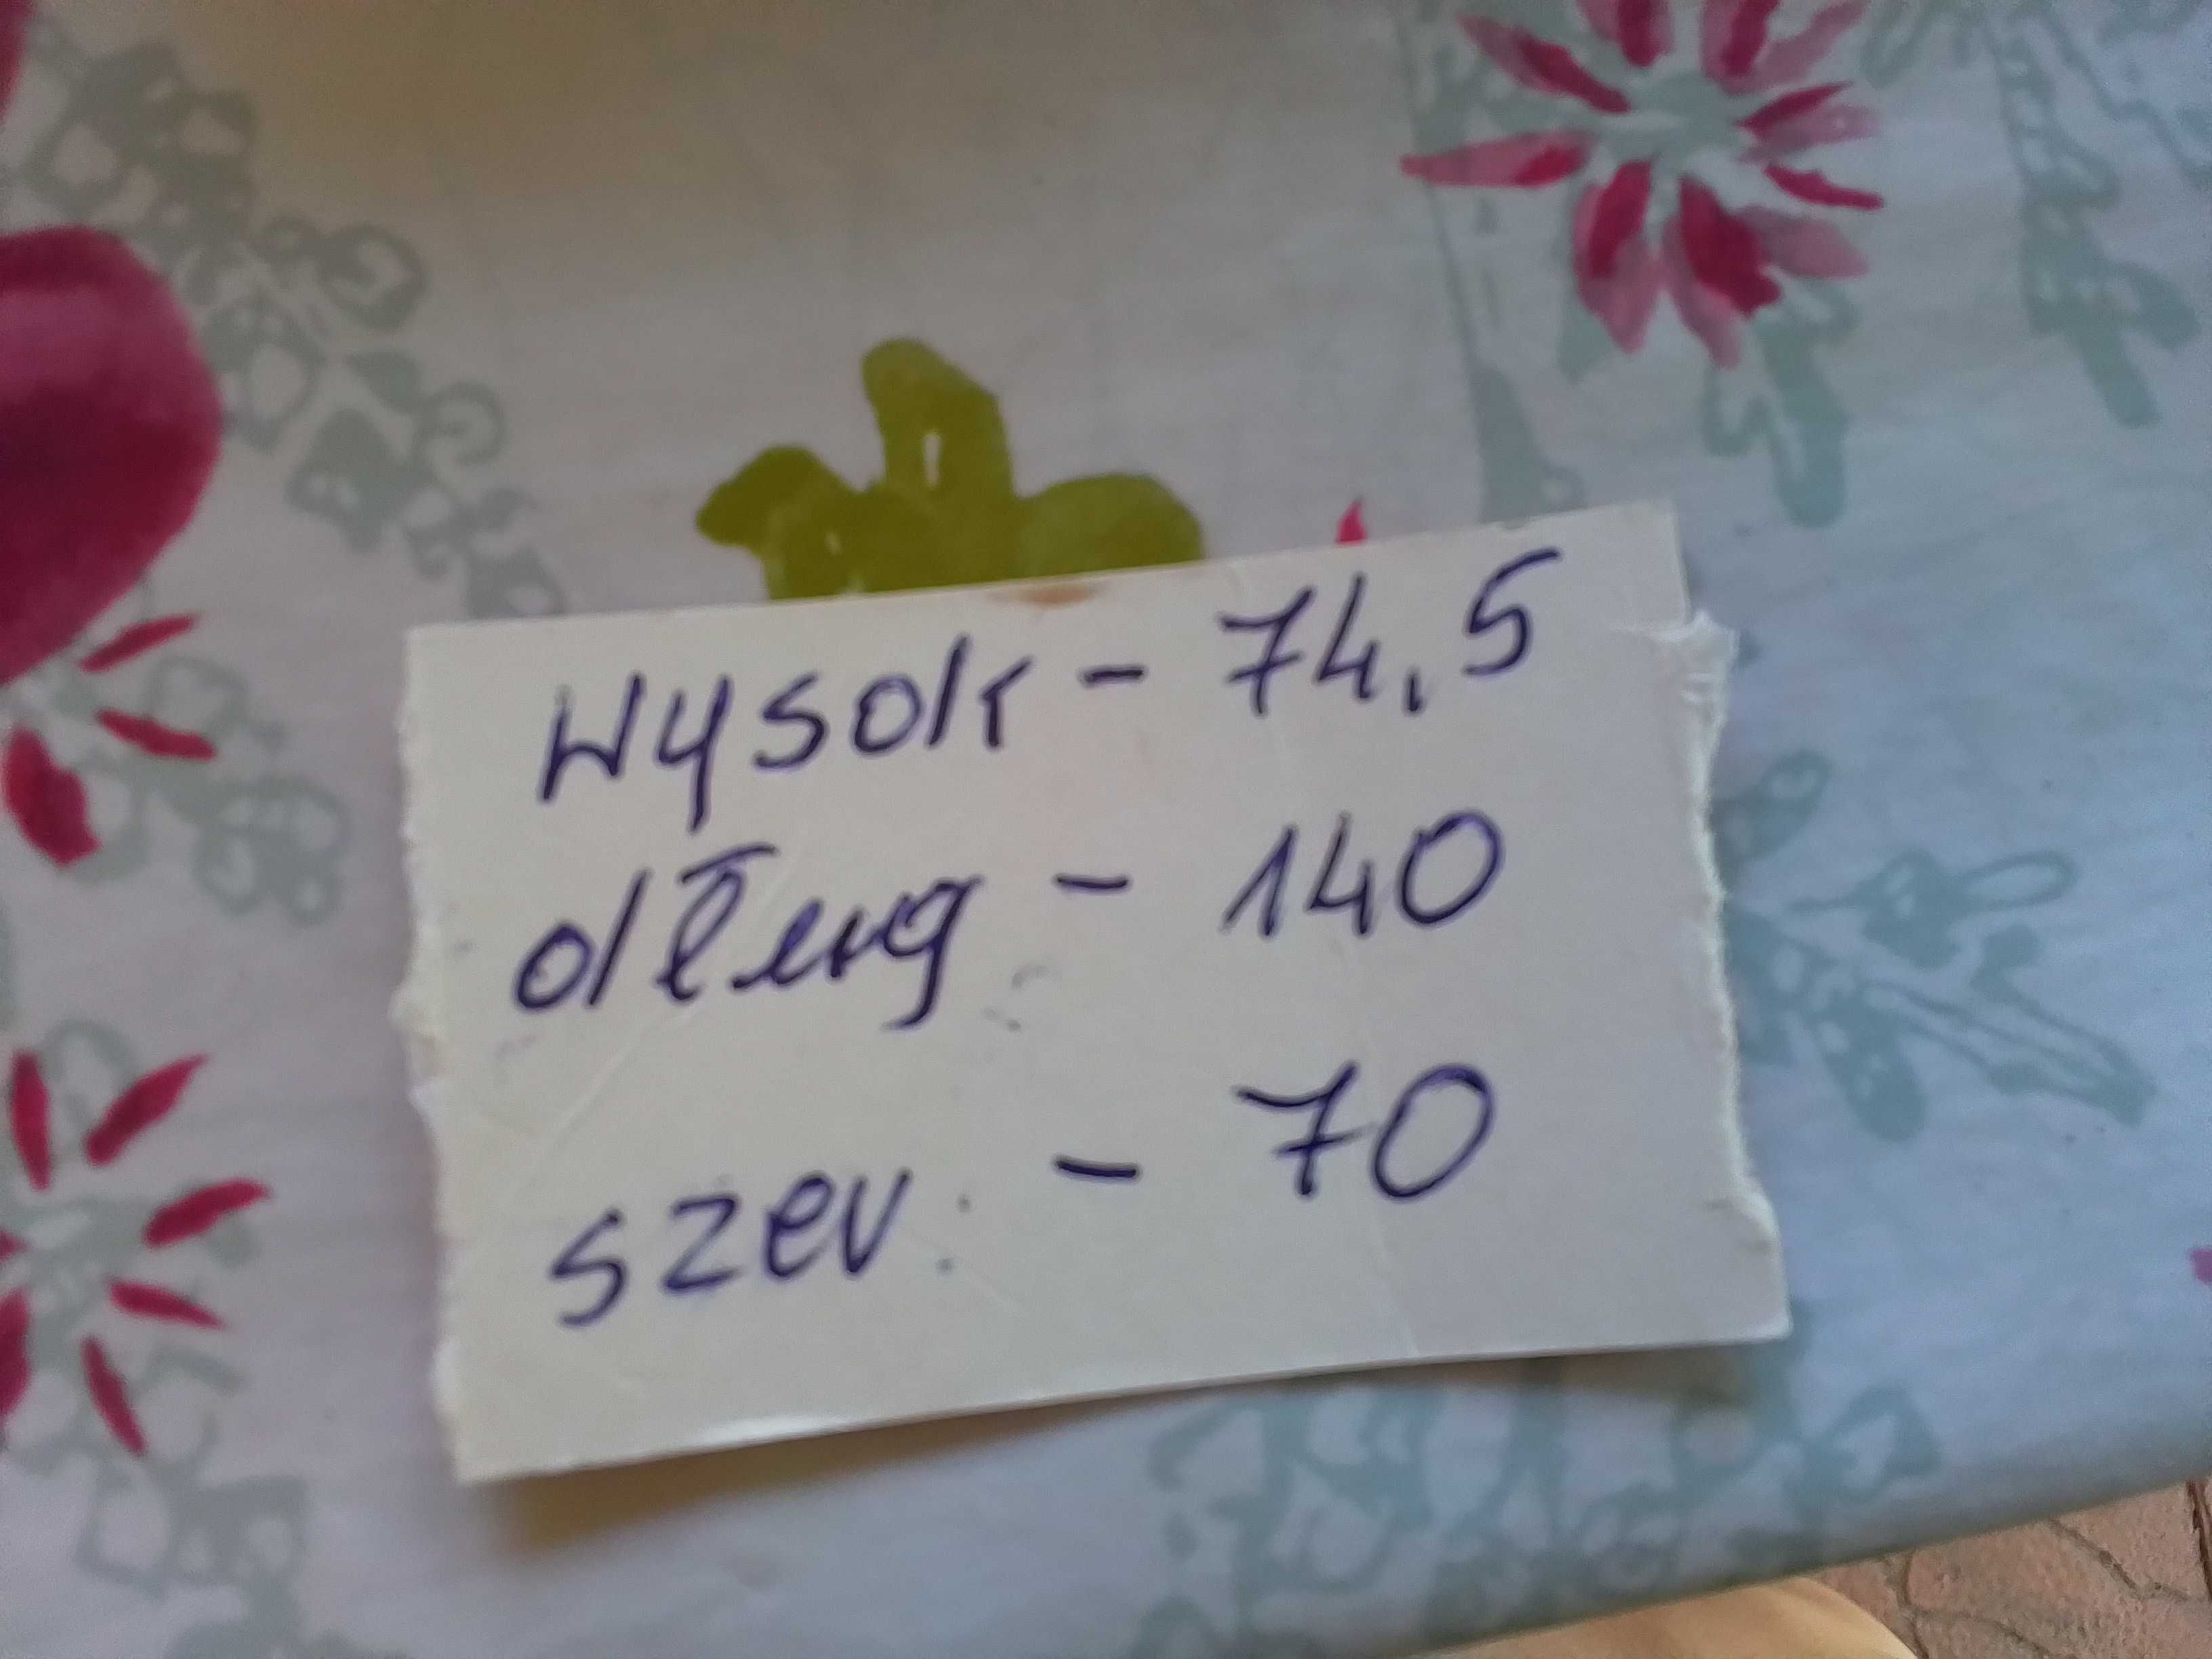 Wysok - 74,5
dług - 140
szer. - 70